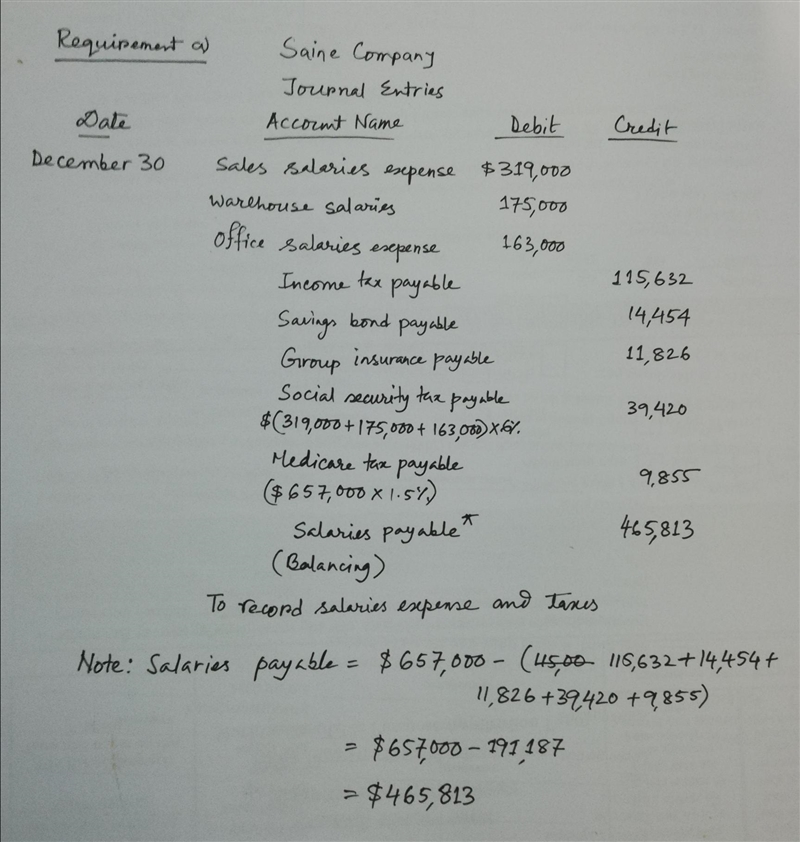 Requirement a) Saine Company
Journal Entries
Date Account Name Debit Credit
December 30 Sales salaries expense $319,000
Warehouse salaries 175,000
Office salaries expense 163,000
Income tax payable 115,632
Savings bond payable 14,454
Group insurance payable 11,826
Social security tax payable 39,420
$(319,000+175,000+163,000)×6%.
Medicare tax payable 9,855
($657,000×1.5%)
Salaries payable* 465,813
(Balancing)
To record salaries expense and taxes
Note: Salaries payable = $657,000 – (45,00 115,632+14,454+
11,826+39,420+9,855)
= $657,000 – 191,187
= $465,813